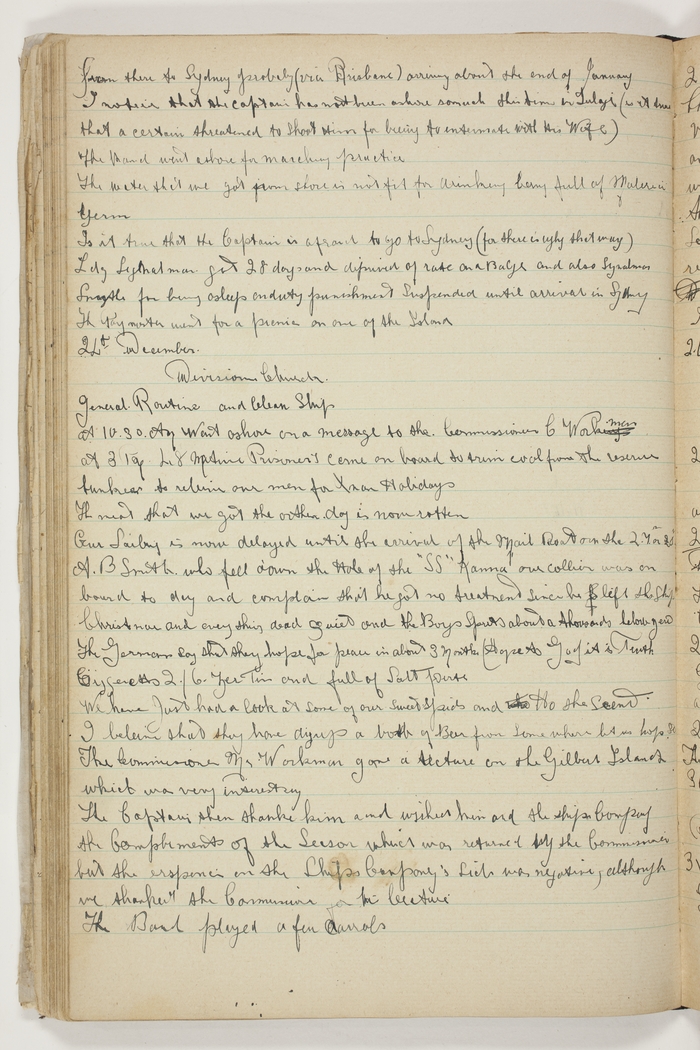 From there to Sydney probely (via Brisbane) arriving about the end of January
I notice that the captain has not been ashore so much this time in Tulagi (is it true
that a certain threatened to shoot him for being to entermate with his Wife)
The Band went ashore for marching practice
The water that we got from shore is not fit for drinking being full of Malaria
Germ
Is it true that the Captain is afraid to go to Sydney (for there is ugly that way)
Ldg got 28 days and diprived of rate and a Badge and also
for being asleep on duty punishment Suspended until arrival in Sydney
The Paymaster went for a picnic on one of the Island
24th December.
Divisions Church.
General Routine and Clean Ship
At 10.30. Am Went ashore on a message to the Commissioner C Workman
at 3 Native Prisoner's came on board to trim coal from the reserve
bunkers to releive our men for Xmas Holidays
The meat that we got the other day is now rotten
Our Sailing is now delayed until the arrival of the Mail Boat on the 27th or 28
A. B Smith. who fell down the Hole of the "SS" our collier was on
board to day and complain that he got no treatment since he left the Ship
Christmas and every thing dead quiet and the Boys Spirits about a thousands below zero
The German say that they hope for peace in about 3 Months (Hope to God it is Truth
Cigeretts 2/6. Per Tin and full of Salt petre
We have Just had a look at some of our sweet Spuds and Ho the Scent.
I beleive that they have dig up a bottle of Beer from Some where let us hope so
The Commissioner Mr Workman gave a lecture on the Gilbert Islands
which was very interesting
The Captain then thanke him and wished him and the ships Company
the Complements of the Season which was returned by the Commissioner
but the response on the Ships Company's Side was negative, although
we thanked the Commissioner for his lecture
The Band played a few Carrols